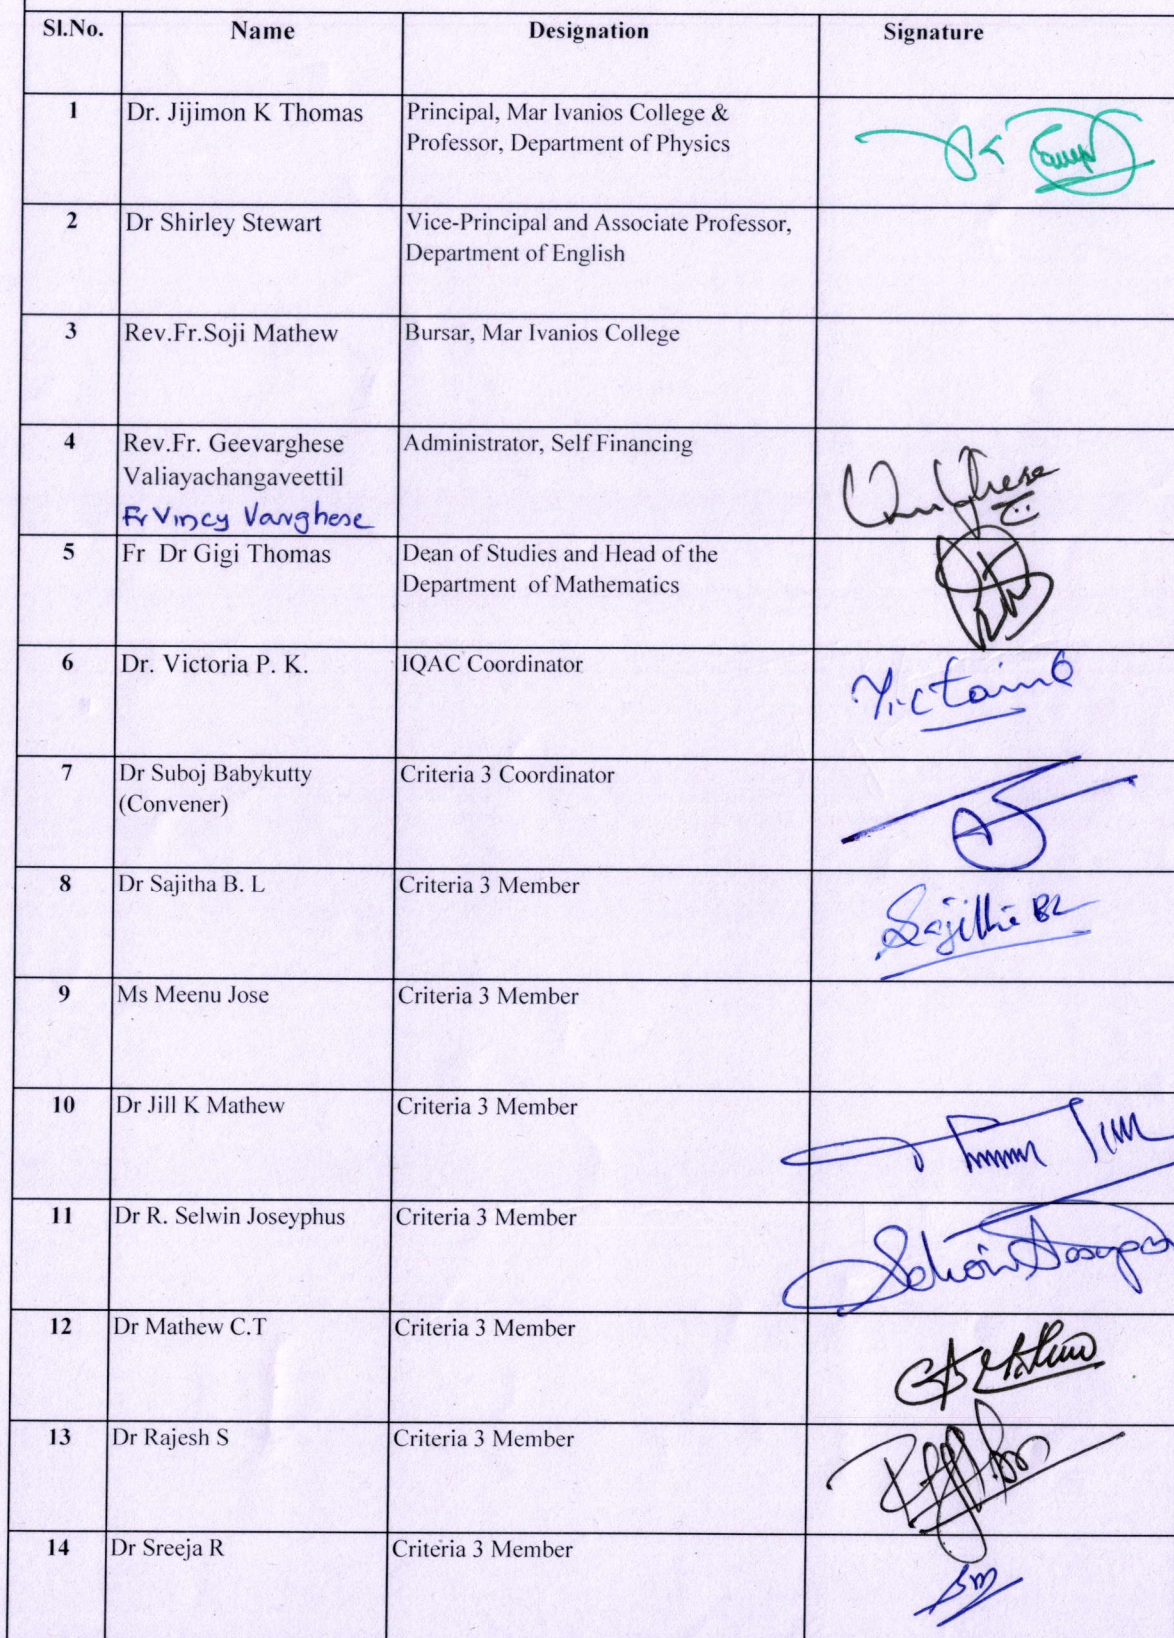 Sl.No. Name Designation Signature
1 Dr. Jijimon K Thomas Principal, Mar Ivanios College &
Professor, Department of Physics
2 Dr Shirley Stewart Vice-Principal and Associate Professor,
Department of English
3 Rev.Fr.Soji Mathew Bursar, Mar Ivanios College
4 Rev.Fr. Geevarghese Administrator, Self Financing
Valiayachangaveettil
Fr Vincy Varghese
5 Fr Dr Gigi Thomas Dean of Studies and Head of the
Department of Mathematics
6 Dr. Victoria P. K. IQAC Coordinator
7 Dr Suboj Babykutty Criteria 3 Coordinator
(Convener)
8 Dr Sajitha B. L Criteria 3 Member
9 Ms Meenu Jose Criteria 3 Member
10 Dr Jill K Mathew Criteria 3 Member
11 Dr R. Selwin Joseyphus Criteria 3 Member
12 Dr Mathew C.T Criteria 3 Member
13 Dr Rajesh S Criteria 3 Member
14 Dr Sreeja R Criteria 3 Member